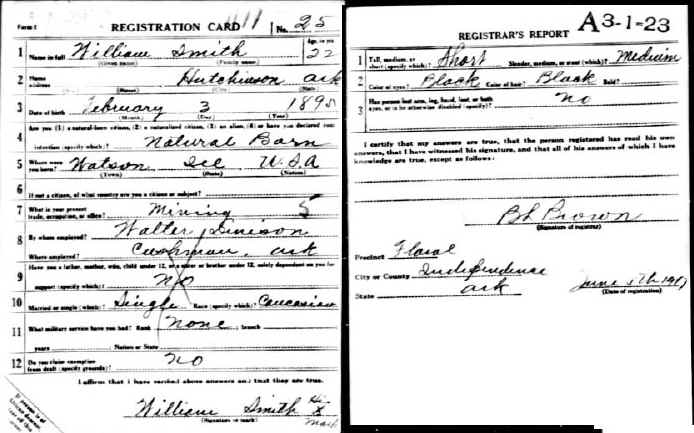 Form 1 REGISTRATION CARD No. 25
1 Name in full William Smith Age, in yrs 22
(Given name) (Family name)
2 Home address Hutchinson Ark
(Street) (State)
3 Date of birth February 3 1895
(Month) (Day) (Year)
4 Are you (1) a natural-born citizen, (2) a naturalized citizen, (3) an alien, (4) or have you declared your
intention (specify which)? Natural Born
5 Where were you born? Watson Ill U.S.A
(Town) (State) (Nation)
6 If not a citizen, of what country are you a citizen or subject?
7 What is your present trade, occupation, or office? Mining 5
8 By whom employed? Walter Denison
Where employed? Cushman, Ark
9 Have you a father, mother, wife, child under 12, or a sister or brother under 12, solely dependent on you for
support (specify which)? No
10 Married or single (which)? Single Race (specify which)? Caucasian
11 What military service have you had? Rank None ; branch
years ; Nation or State
12 Do you claim exemption from draft (specify grounds)? No
I affirm that I have verified above answers and that they are true.
William Smith His X mark
(Signature or mark)
REGISTRAR'S REPORT A3-1-23
1 Tall, medium, or short (specify which)? Short Slender, medium, or stout (which)? Medium
2 Color of eyes? Black Color of hair? Black Bald?
3 Has person lost arm, leg, hand, foot, or both eyes, or is he otherwise disabled (specify)? No
I certify that my answers are true, that the person registered has read his own
answers, that I have witnessed his signature, and that all of his answers of which I have
knowledge are true, except as follows:
Brown
(Signature of registrar)
Precinct Floral
City or County Independence
State Ark June 5th 1917
(Date of registration)